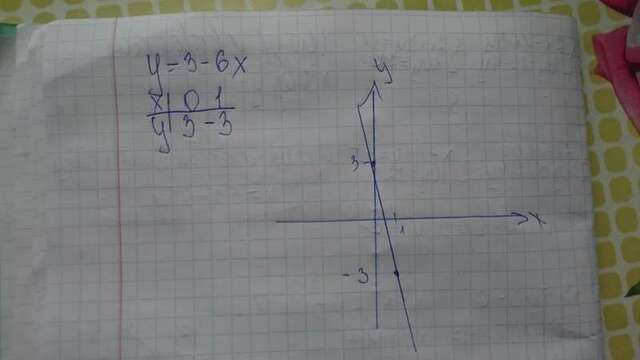 y = 3 - 6x
x | 0 1
y | 3 -3
y
3
x
1
-3